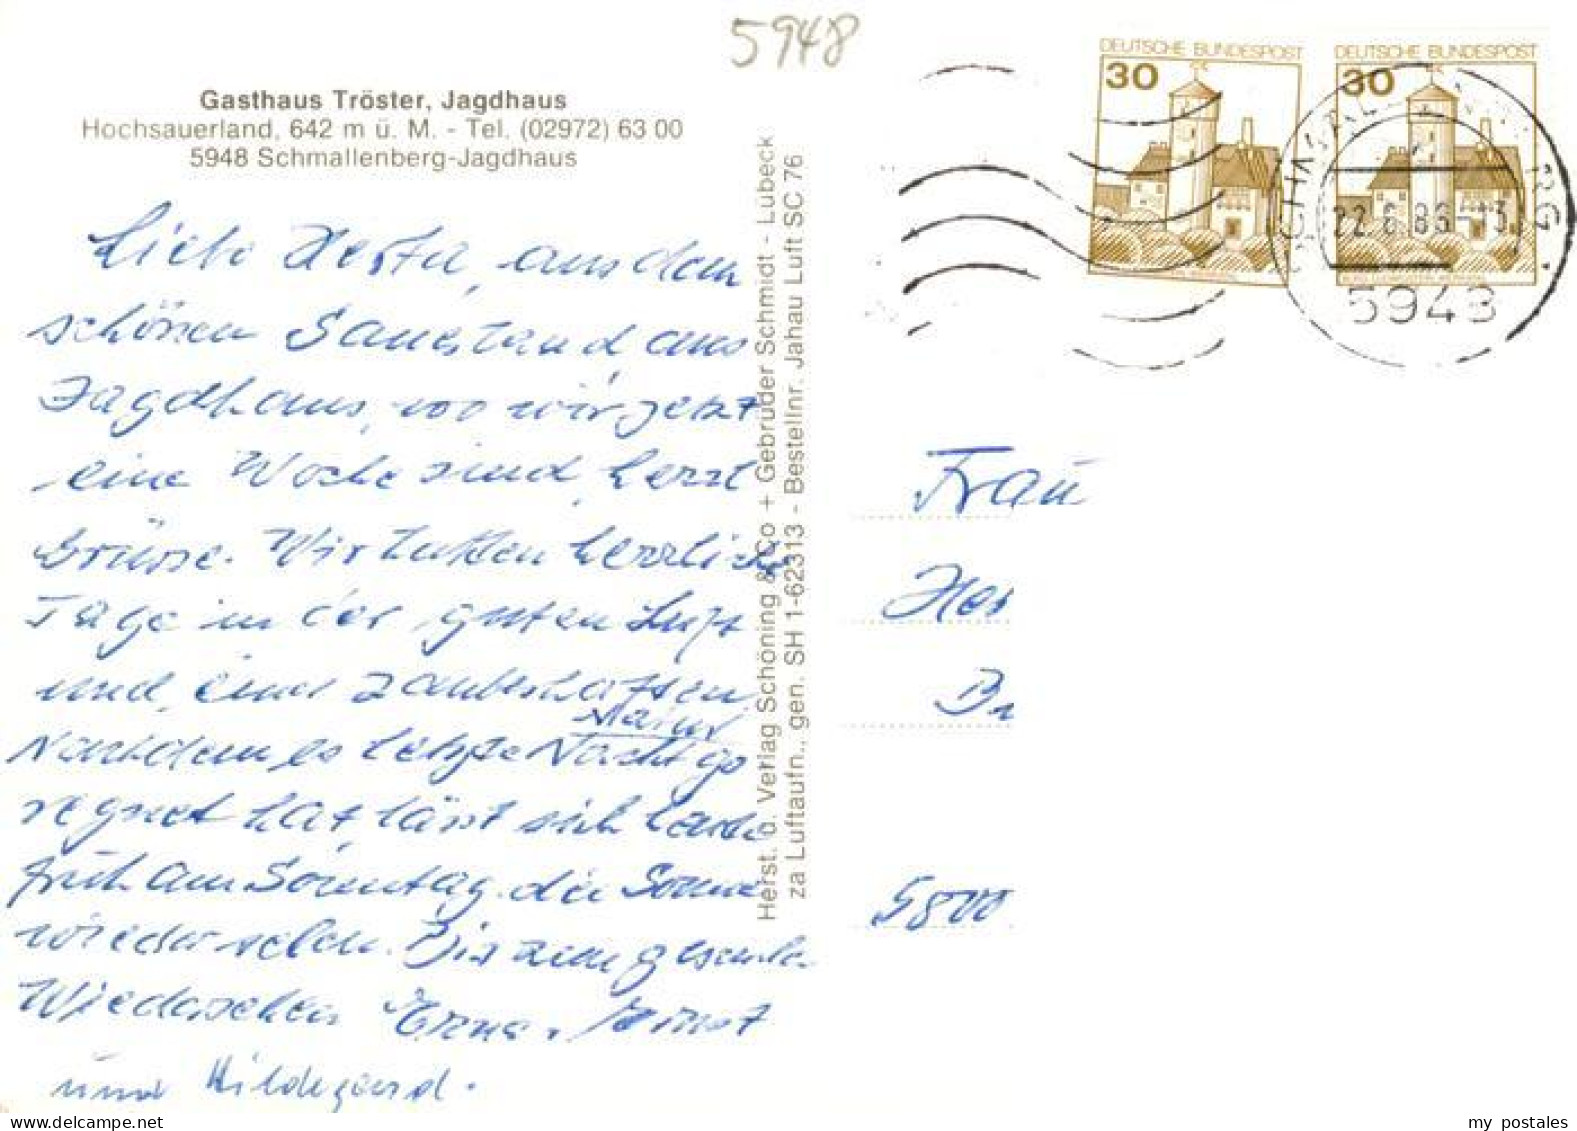 5948
Gasthaus Tröster, Jagdhaus
Hochsauerland, 642 m ü. M. - Tel. (02972) 63 00
5948 Schmallenberg-Jagdhaus
Liebe Herta, aus dem
schönen Sauerland aus
Jagdhaus, wo wir jetzt
eine Woche sind, herzl
Grüsse. Wir hatten herrliche
Tage in der guten Luft
und einer zauberhaften
Natur
Nachdem es letzte Nacht ge
regnet hat lässt sich heute
früh am Sonntag die Sonne
wieder sehen. Bis zum gesunden
Wiedersehen Erna, Ernst
und Hildegard.
Herst. u. Verlag Schöning & Co + Gebrüder Schmidt - Lübeck
za Luftaufn., gen. SH 1-62313 - Bestellnr. Jahau Luft SC 76
DEUTSCHE BUNDESPOST
30
DEUTSCHE BUNDESPOST
30
22.6.86-13
5948
Frau
Her
Br
5800
my postales